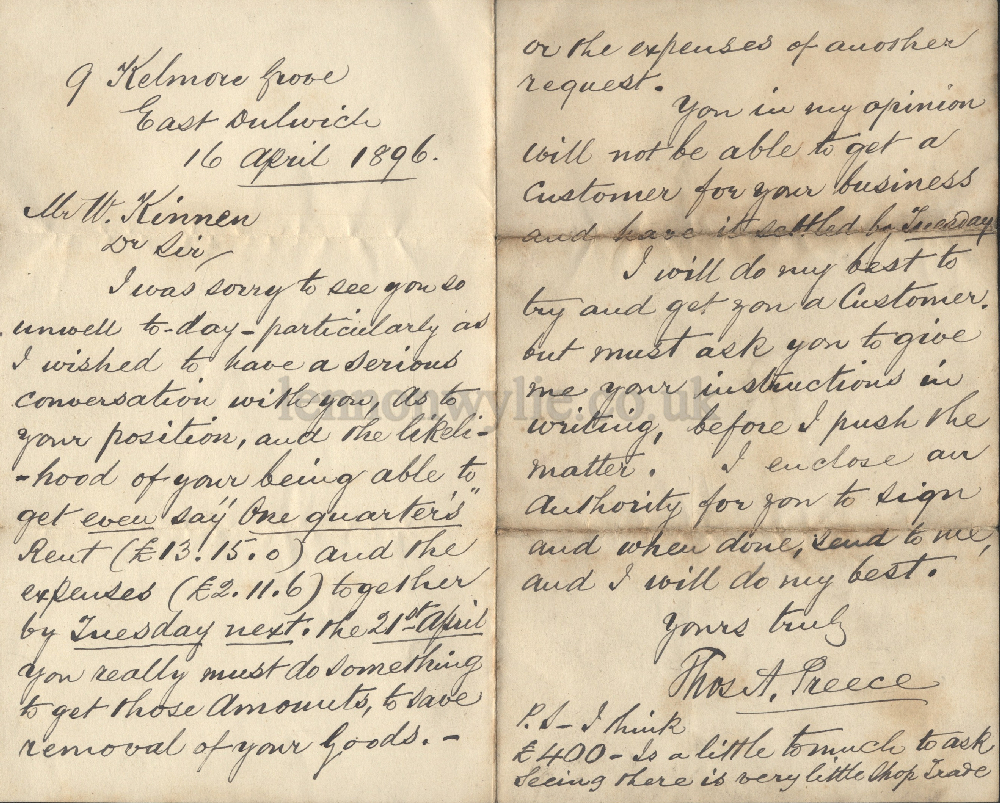 9 Kelmore Grove
East Dulwich
16 April 1896.
Mr W. Kinnen
Dr Sir
I was sorry to see you so
unwell to-day - particularly as
I wished to have a serious
conversation with you as to
your position, and the likeli-
-hood of your being able to
get even say "One quarter's"
Rent (£13.15.0) and the
expenses (£2.11.6) together
by Tuesday next. the 21st April
you really must do something
to get those Amounts, to save
removal of your Goods. -
or the expenses of another
request.
You in my opinion
will not be able to get a
Customer for your business
and have it settled by Tuesday
I will do my best to
try and get you a Customer.
but must ask you to give
me your instructions in
writing, before I push the
matter. I enclose an
Authority for you to sign
and when done, send to me,
and I will do my best.
Yours truly
Thos A. Preece
P.S - I think
£400 - Is a little to much to ask
Seeing there is very little Shop Trade
lennonwylie.co.uk